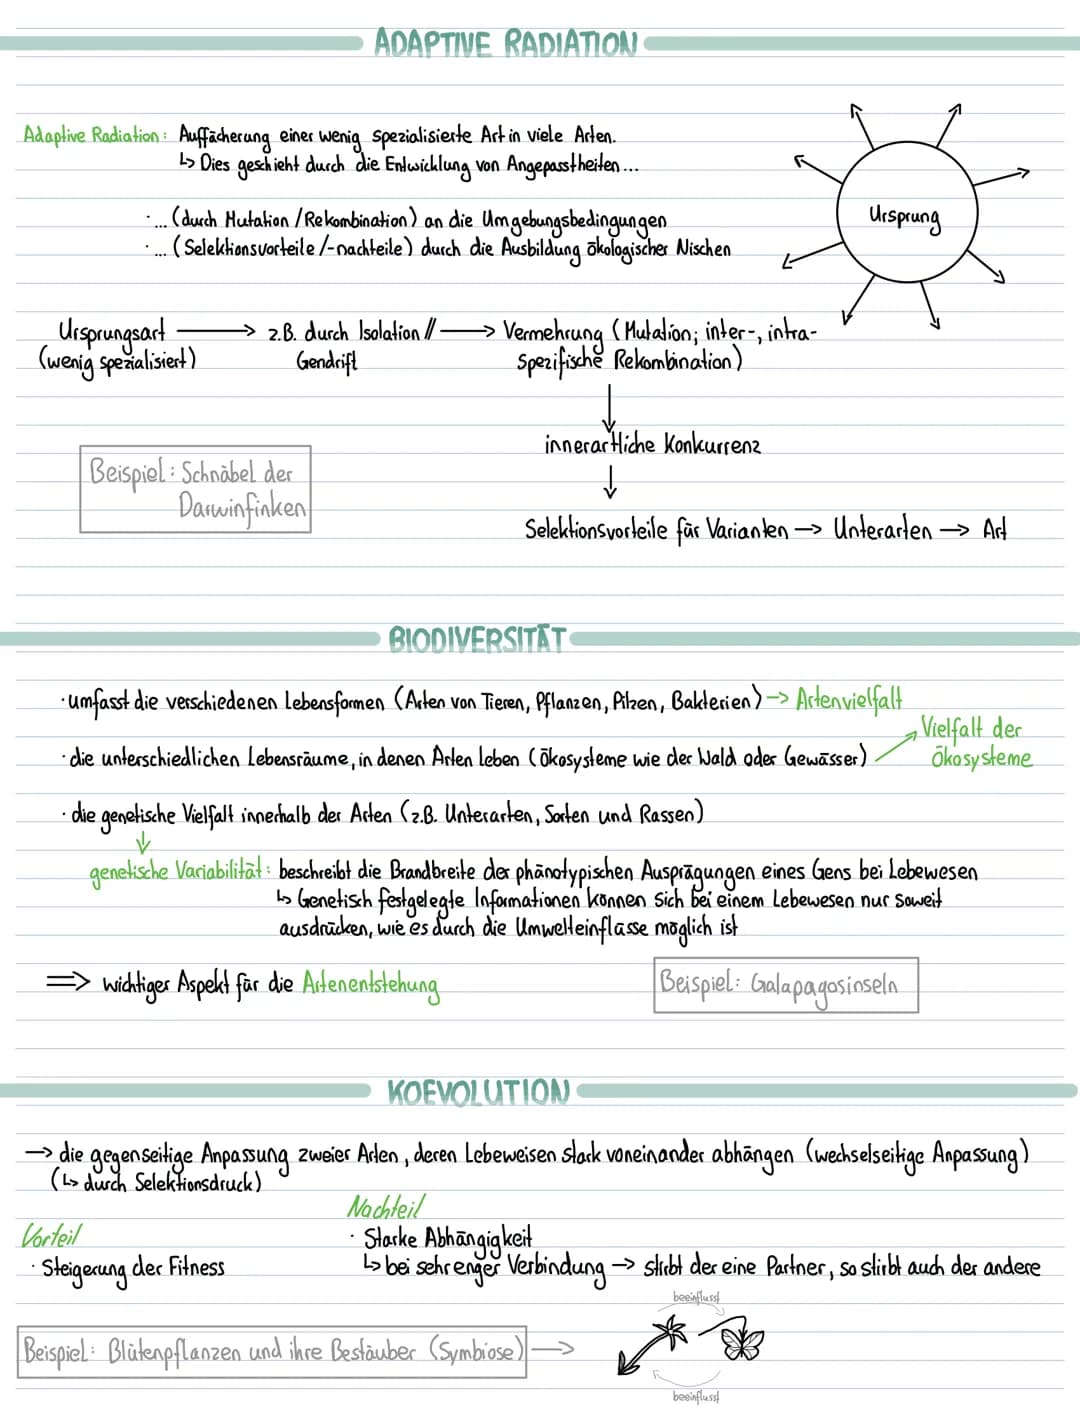 ADAPTIVE RADIATION
Adaptive Radiation: Auffächerung einer wenig spezialisierte Art in viele Arten.
↳ Dies geschieht durch die Entwicklung von Angepasstheiten...
·... (durch Mutation / Rekombination) an die Umgebungsbedingungen
·... (Selektionsvorteile /-nachteile) durch die Ausbildung ökologischer Nischen
Ursprung
Ursprungsart → z.B. durch Isolation // → Vermehrung (Mutation; inter-, intra-
(wenig spezialisiert) Gendrift spezifische Rekombination)
↓
innerartliche Konkurrenz
↓
Selektionsvorteile für Varianten → Unterarten → Art
Beispiel: Schnäbel der
Darwinfinken
BIODIVERSITÄT
· umfasst die verschiedenen Lebensformen (Arten von Tieren, Pflanzen, Pilzen, Bakterien) → Artenvielfalt
· die unterschiedlichen Lebensräume, in denen Arten leben (Ökosysteme wie der Wald oder Gewässer) → Vielfalt der
Ökosysteme
· die genetische Vielfalt innerhalb der Arten (z.B. Unterarten, Sorten und Rassen)
↓
genetische Variabilität: beschreibt die Brandbreite der phänotypischen Ausprägungen eines Gens bei Lebewesen
↳ Genetisch festgelegte Informationen können sich bei einem Lebewesen nur soweit
ausdrücken, wie es durch die Umwelteinflüsse möglich ist
⇒ wichtiger Aspekt für die Artenentstehung
Beispiel: Galapagosinseln
KOEVOLUTION
→ die gegenseitige Anpassung zweier Arten, deren Lebeweisen stark voneinander abhängen (wechselseitige Anpassung)
(↳ durch Selektionsdruck)
Vorteil
· Steigerung der Fitness
Nachteil
· Starke Abhängigkeit
↳ bei sehr enger Verbindung → stirbt der eine Partner, so stirbt auch der andere
Beispiel: Blütenpflanzen und ihre Bestäuber (Symbiose) →
beeinflusst
beeinflusst